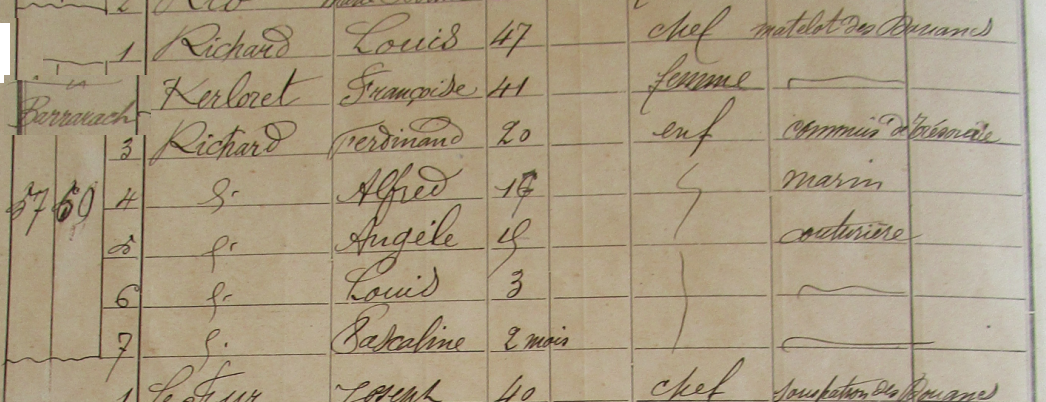 2
1 Richard Louis 47 chef matelot des Douanes
Kerloret Françoise 41 femme
Barrarach
3 Richard Ferdinand 20 enf commis de Trésorerie
57 60 4 d° Alfred marin
5 d° Angèle 15 couturière
6 d° Louis 3
7 d° Pascaline 2 mois
1 Le Fur Joseph 40 chef souspatron des Douanes